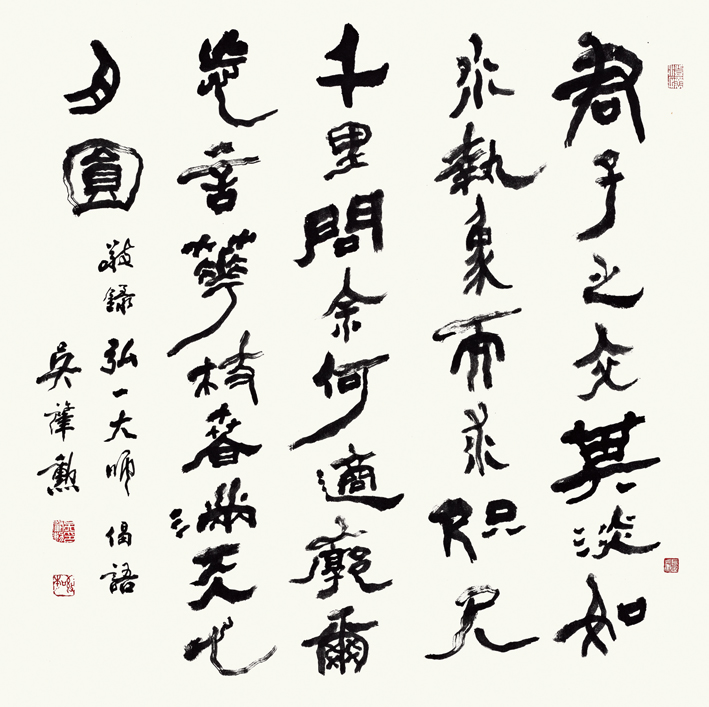 君子之交其淡如
水執象而求咫尺
千里問余何適廓爾
忘言華枝春滿天心
月圓
敬錄弘一大師偈語
吳肇勳